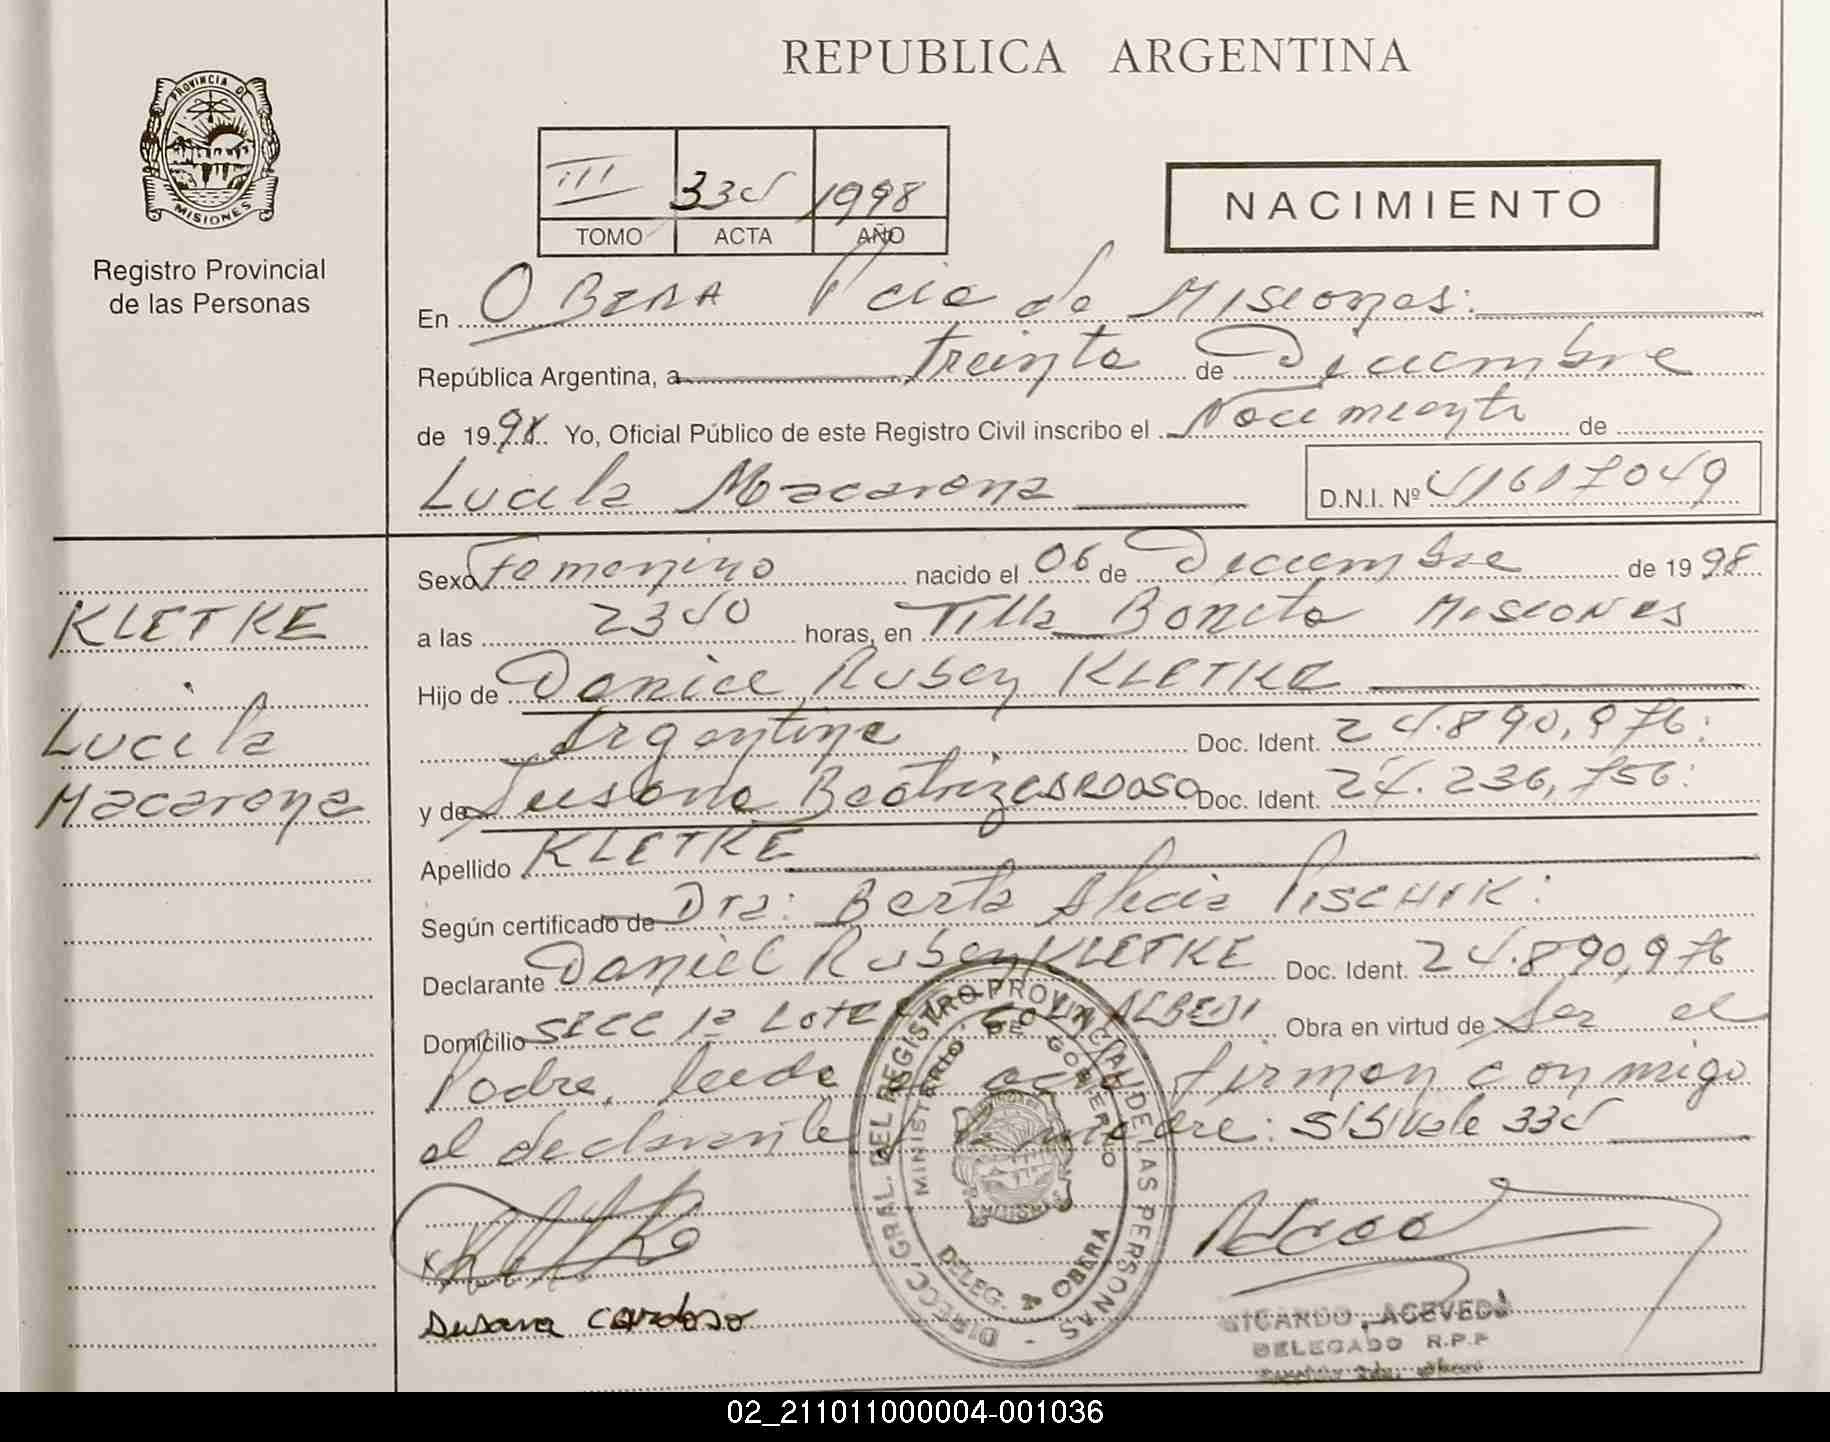 REPUBLICA ARGENTINA
PROVINCIA DE
MISIONES
Registro Provincial
de las Personas
III 334 1998
TOMO ACTA AÑO
NACIMIENTO
En OBERA Pcia de Misiones:
República Argentina, a treinta de Diciembre
de 1998. Yo, Oficial Público de este Registro Civil inscribo el Nacimiento de
Lucila Macarena D.N.I. Nº 41617049
KLETKE
Lucila
Macarena
Sexo Femenino nacido el 06 de Diciembre de 1998
a las 2340 horas, en Villa Bonita Misiones
Hijo de Daniel Ruben KLETKE
Argentina Doc. Ident. 24.890,976:
y de Susana Beatriz Doc. Ident. 24.236,756:
Apellido KLETKE
Según certificado de Dra: Berta Alicia Pischik:
Declarante Daniel Ruben KLETKE Doc. Ident. 24.890,976
Domicilio SECC 1ª Lote ALBERDI Obra en virtud de Ser el
Padre, leida el acta firman conmigo
el declarante y la madre: S/B/Vale 334
Susana Cardoso
DIRECC. GRAL. DEL REGISTRO PROVINCIAL DE LAS PERSONAS
MINISTERIO DE GOBIERNO
DELEG. OBERA
RICARDO ACEVEDO
DELEGADO R.P.P
02_211011000004-001036